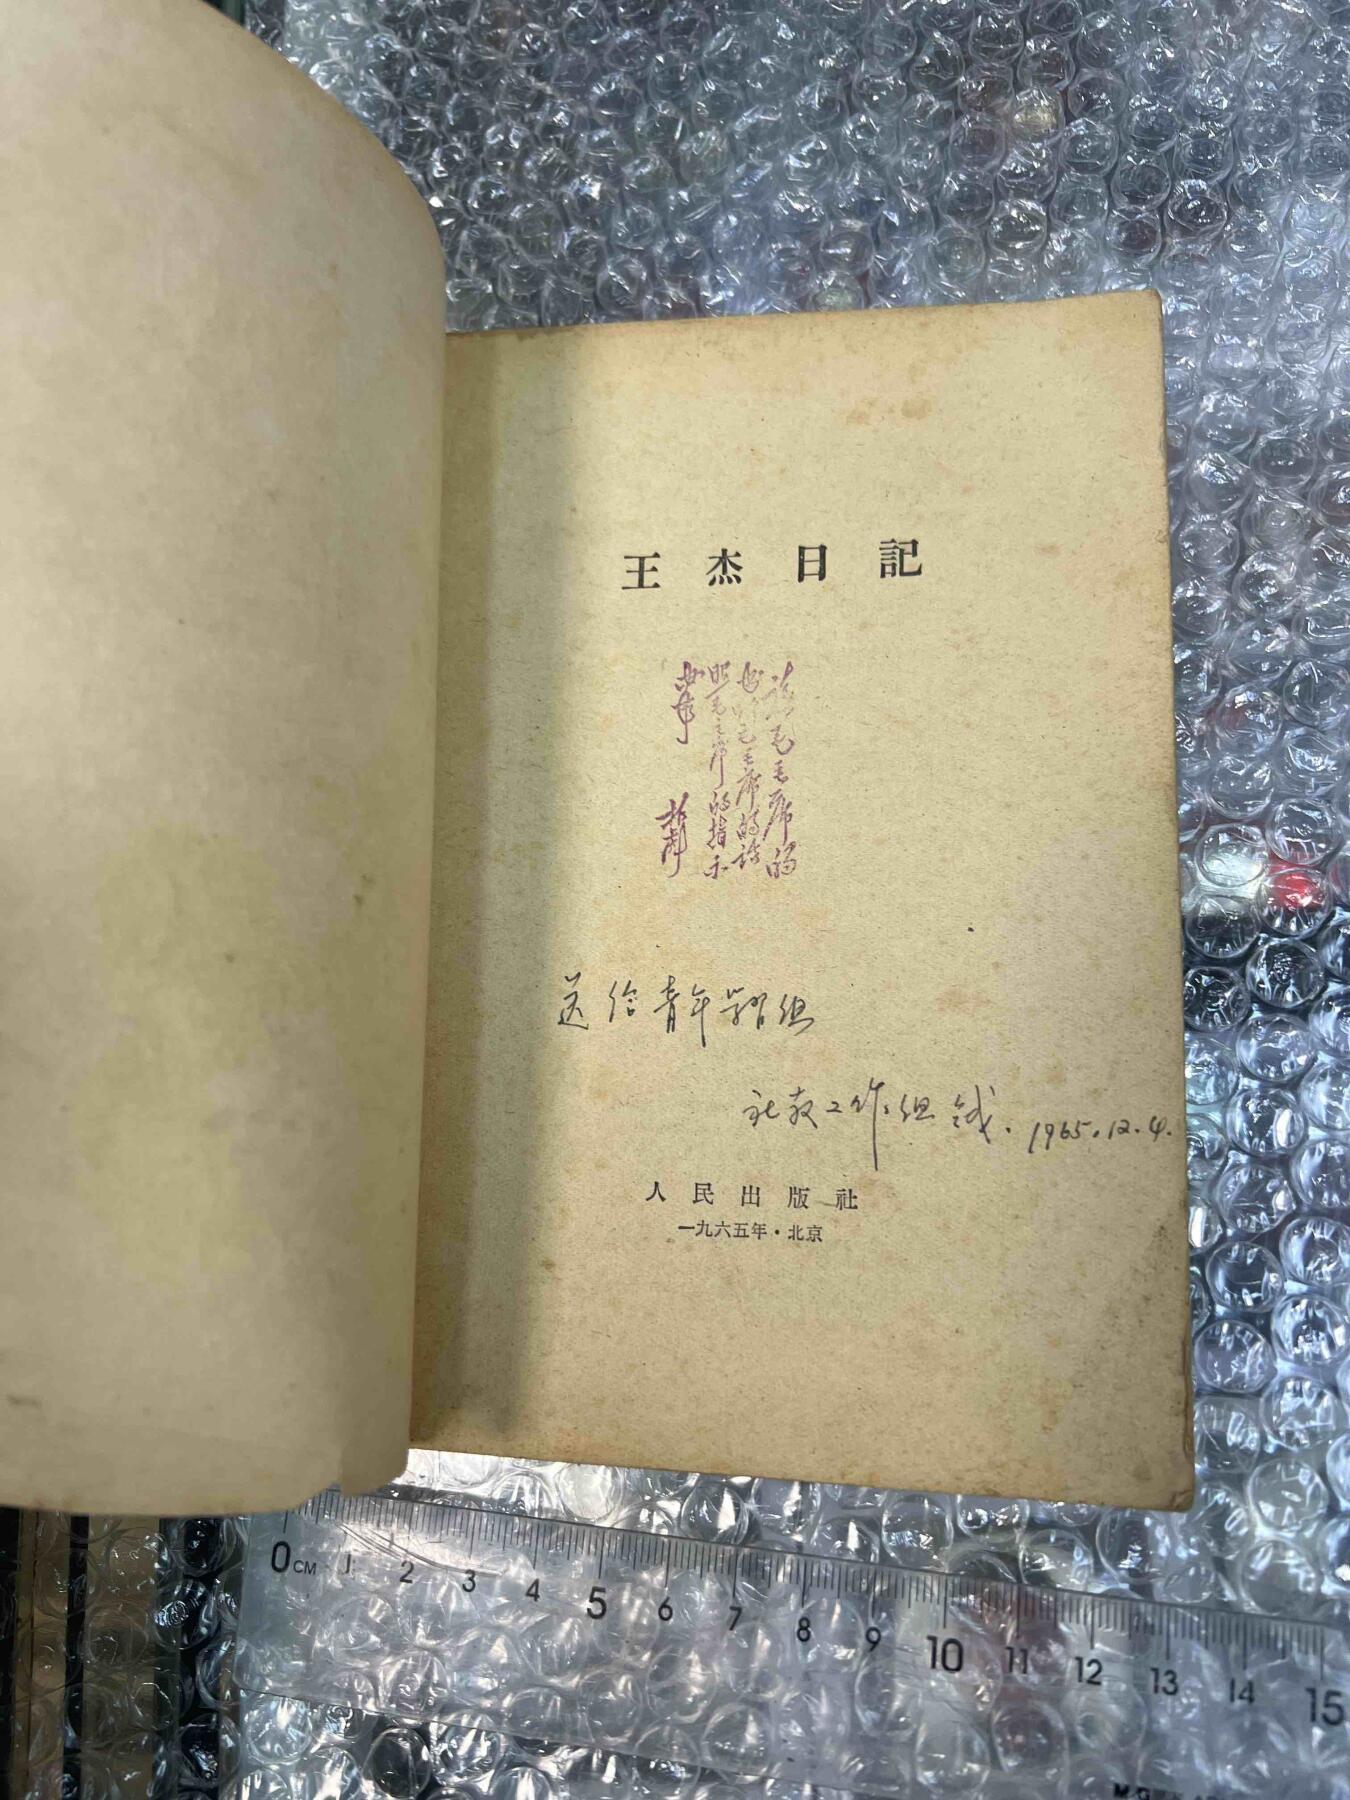 王杰日記
读毛主席的
书听毛主席的话
照毛主席的指示
办事
林彪
送给青年学习组
社教工作组 1965.12.4.
人民出版社
一九六五年·北京
0CM 1 2 3 4 5 6 7 8 9 10 11 12 13 14 15